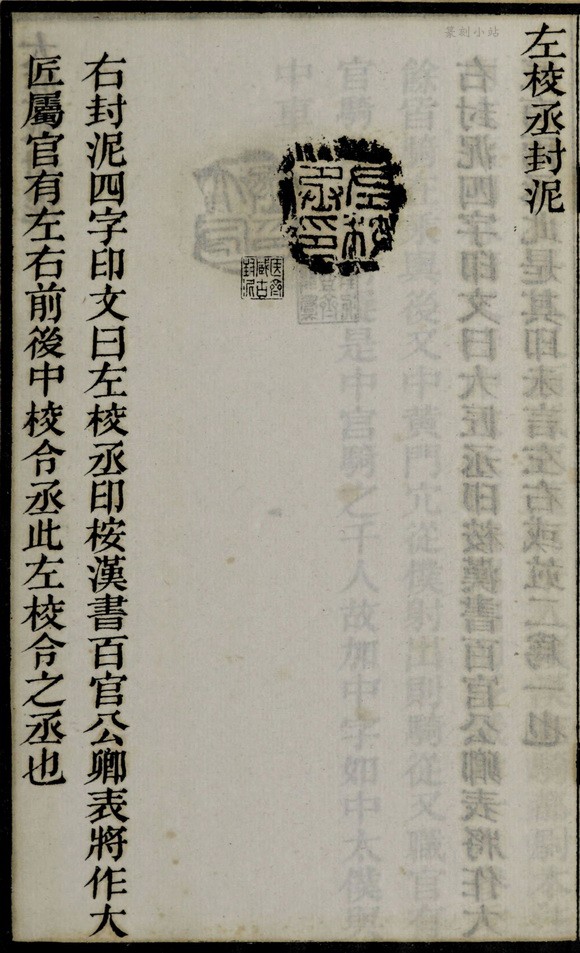 篆刻小站
左校丞封泥
左校
丞印
藏古
封泥
右封泥四字印文曰左校丞印桉漢書百官公卿表將作大
匠屬官有左右前後中校令丞此左校令之丞也